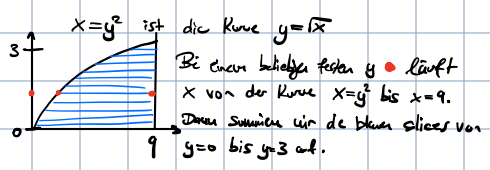 x=y² ist die Kurve y=√x
3
Bei einem beliebigen festen y läuft
x von der Kurve x=y² bis x=9.
Dann summieren wir die blauen slices von
0
9
y=0 bis y=3 auf.